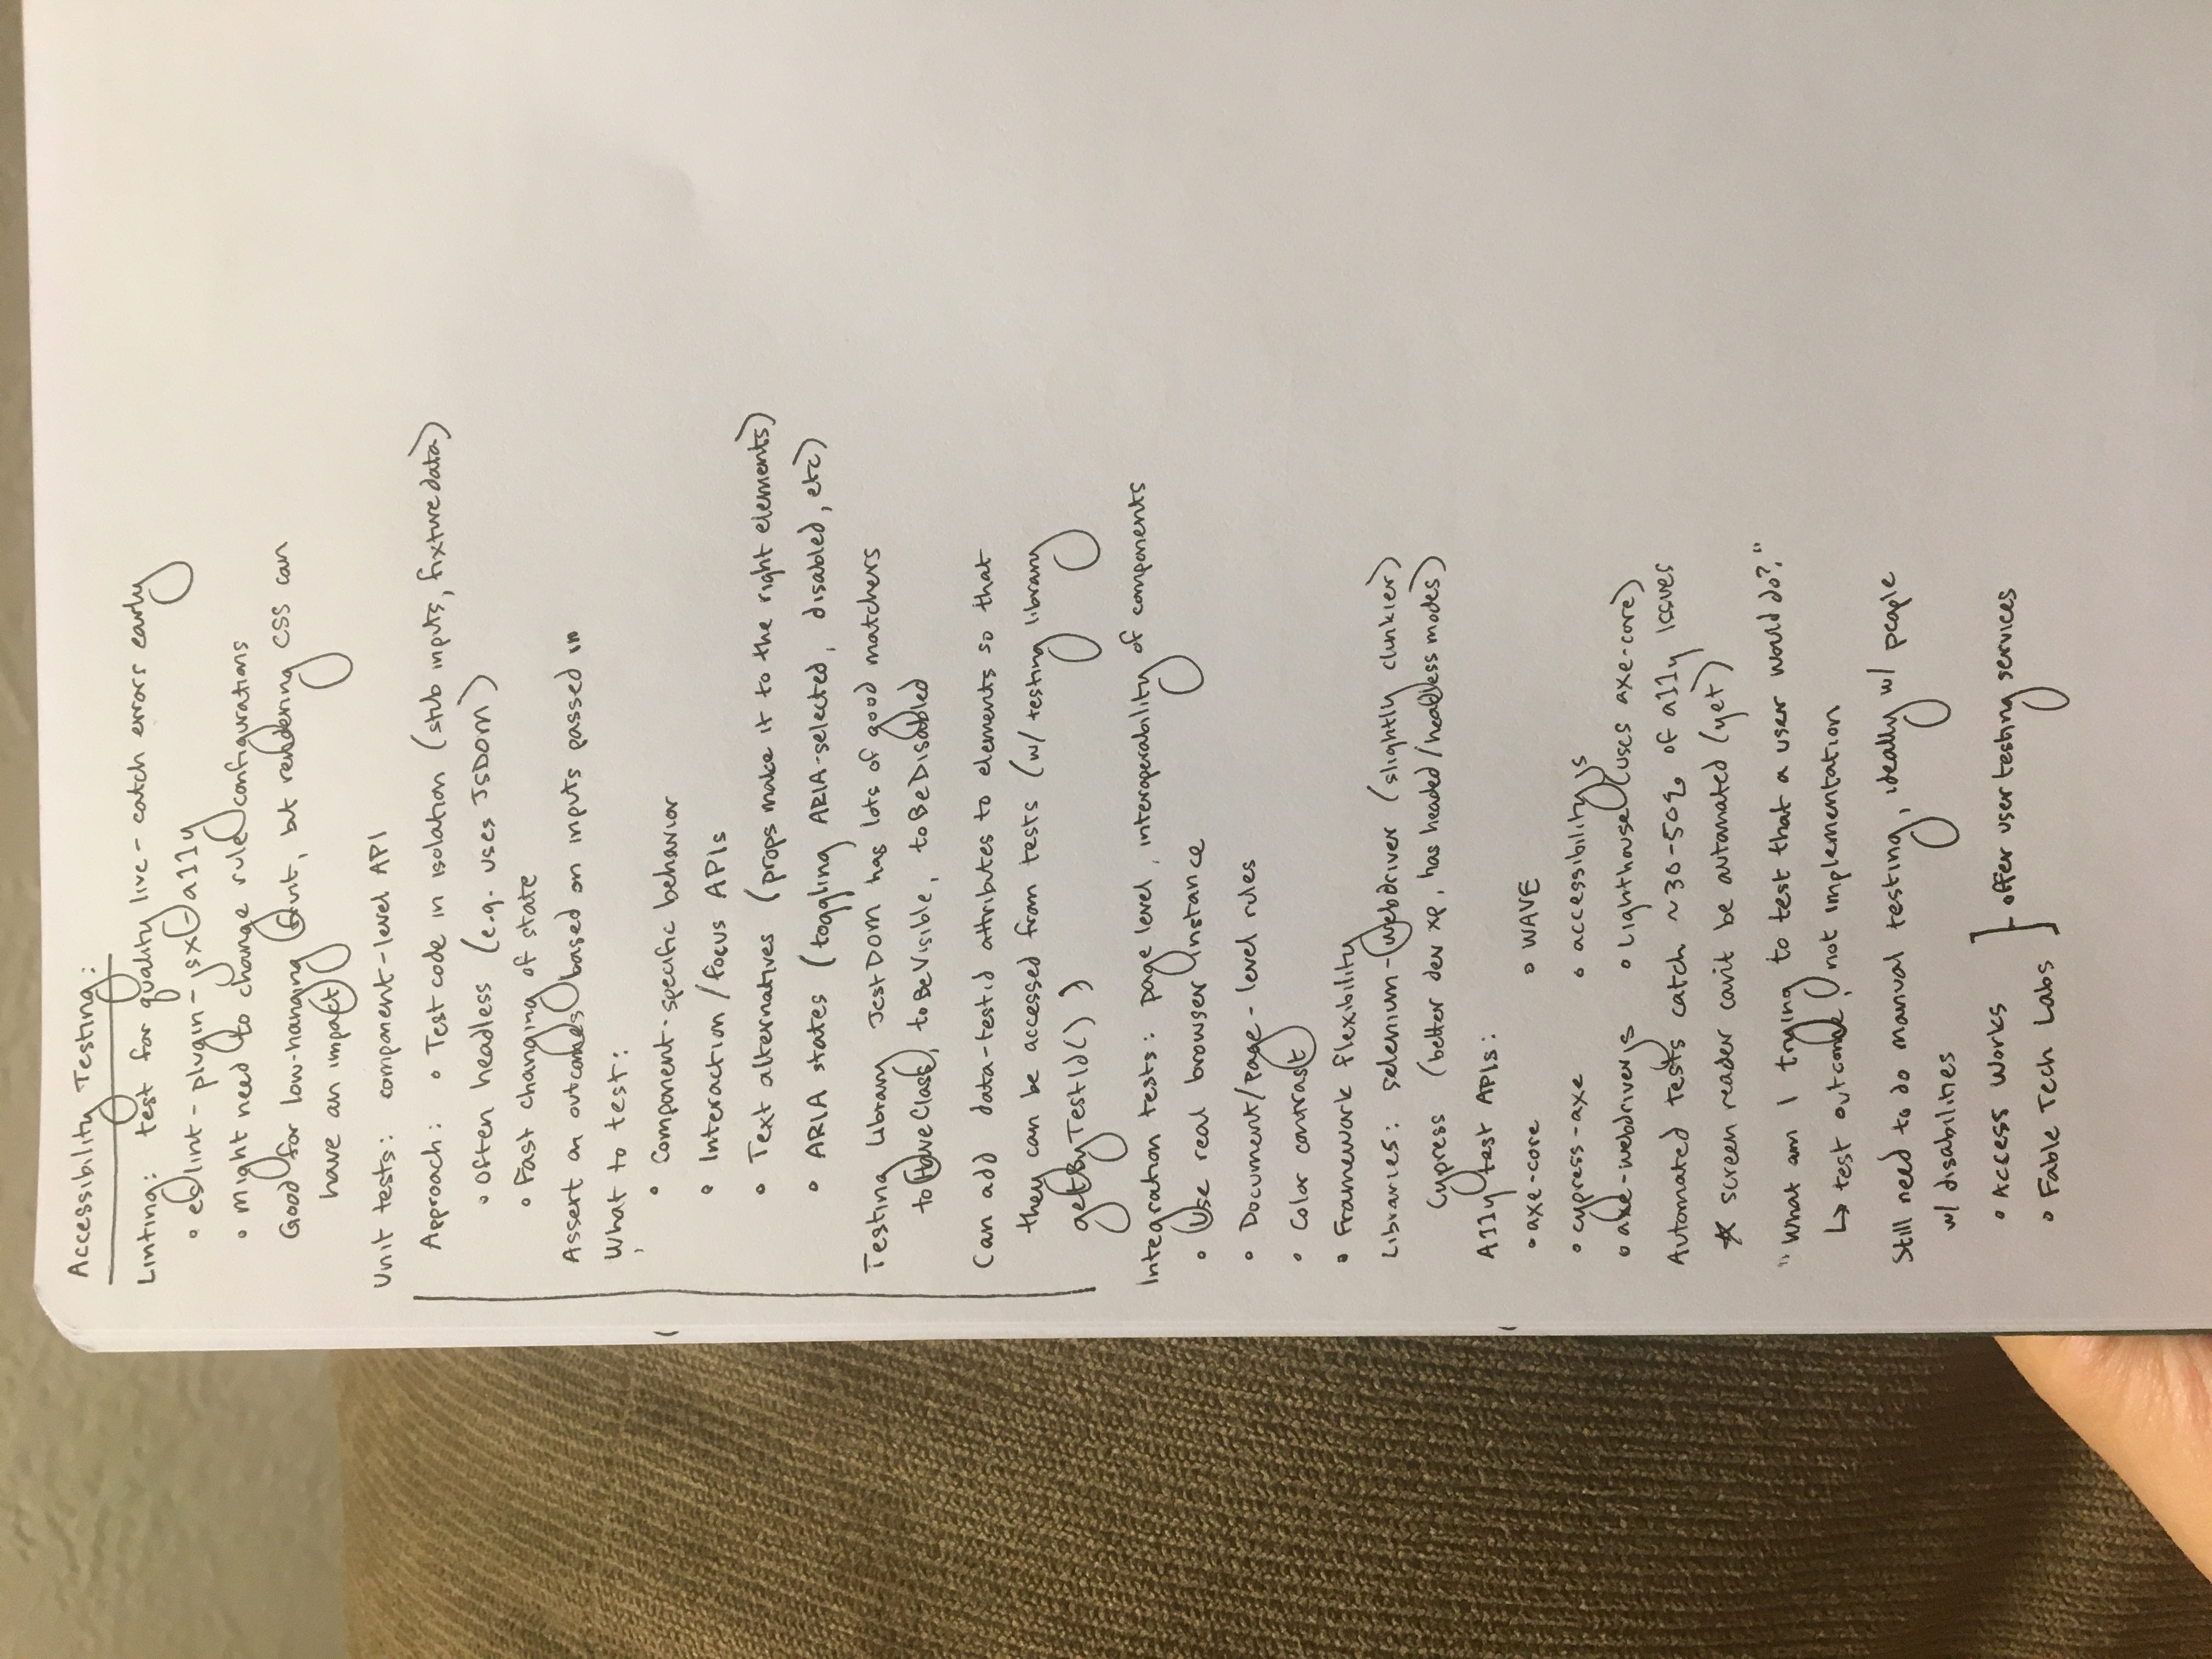 Accessibility Testing:
Linting: test for quality live - catch errors early
• eslint-plugin-jsx-a11y
• Might need to change rule configurations
Good for low-hanging fruit, but rendering CSS can
have an impact
Unit tests: component-level API
Approach: • Test code in isolation (stub inputs, fixture data)
• Often headless (e.g. uses JSDOM)
• Fast changing of state
Assert on outcomes based on inputs passed in
What to test:
• Component-specific behavior
• Interaction/focus APIs
• Text alternatives (props make it to the right elements)
• ARIA states (toggling ARIA-selected, disabled, etc)
Testing Library JestDOM has lots of good matchers
toHaveClass, toBeVisible, toBeDisabled
Can add data-testid attributes to elements so that
they can be accessed from tests (w/ testing library
getByTestId() )
Integration tests: page level, interoperability of components
• Use real browser instance
• Document/page-level rules
• Color contrast
• Framework flexibility
Libraries: selenium-webdriver (slightly clunkier)
Cypress (better dev xp, has headed/headless modes)
A11y test APIs:
• axe-core • WAVE
• cypress-axe • accessibilityjs
• axe-webdriverjs • Lighthouse (uses axe-core)
Automated tests catch ~30-50% of a11y issues
* screen reader can't be automated (yet)
"What am I trying to test that a user would do?"
↳ test outcome, not implementation
Still need to do manual testing, ideally w/ people
w/ disabilities
• Access Works
} offer user testing services
• Fable Tech Labs